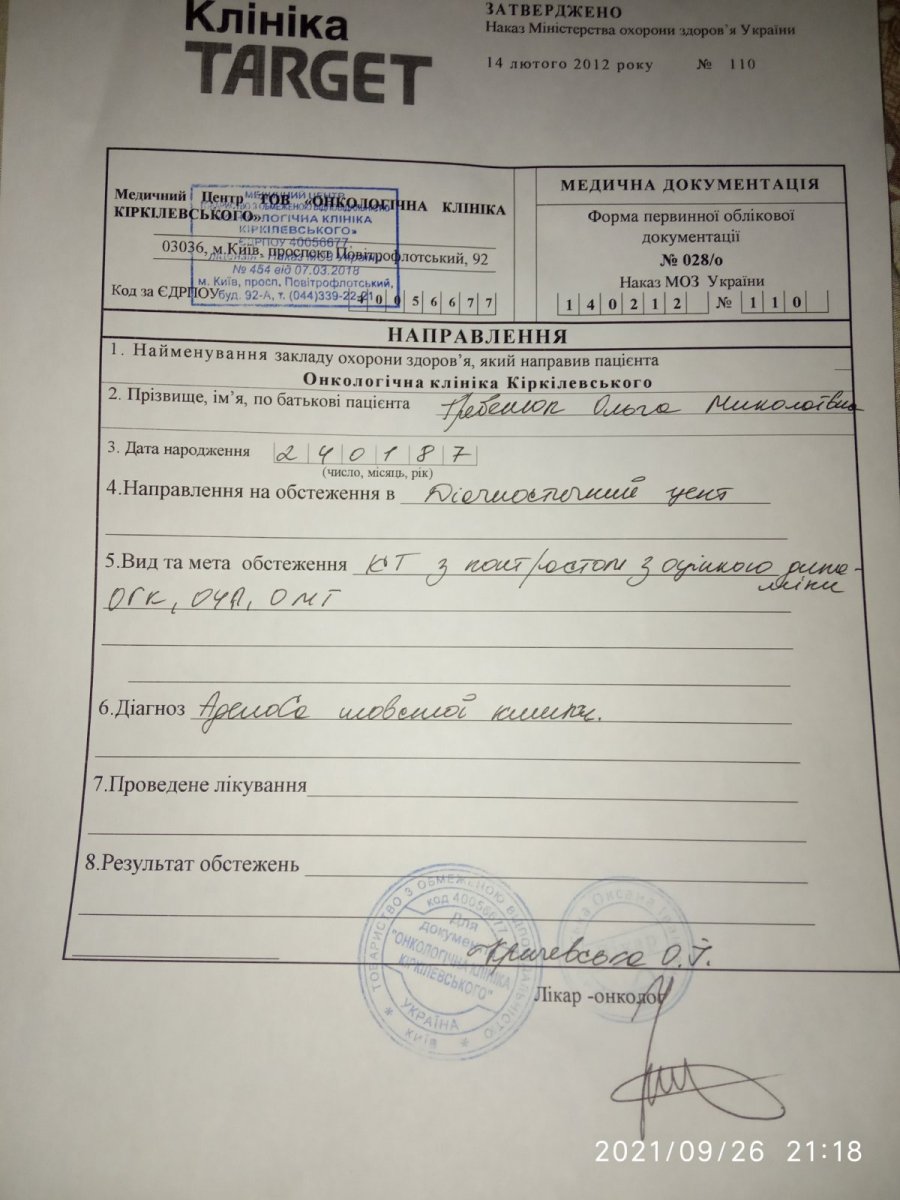 Клініка
TARGET
ЗАТВЕРДЖЕНО
Наказ Міністерства охорони здоров'я України
14 лютого 2012 року № 110
Медичний Центр ТОВ «ОНКОЛОГІЧНА КЛІНІКА
КІРКІЛЕВСЬКОГО»
03036, м.Київ, проспект Повітрофлотський, 92
Код за ЄДРПОУ 40056677
МЕДИЧНИЙ ЦЕНТР
КІРКІЛЕВСЬКОГО»
ЄДРПОУ 40056677
№ 454 від 07.03.2018
м. Київ, просп. Повітрофлотський,
буд. 92-А, т. (044)339-22-21
МЕДИЧНА ДОКУМЕНТАЦІЯ
Форма первинної облікової
документації
№ 028/о
Наказ МОЗ України
140212 № 110
НАПРАВЛЕННЯ
1. Найменування закладу охорони здоров'я, який направив пацієнта
Онкологічна клініка Кіркілевського
2. Прізвище, ім'я, по батькові пацієнта Ольга Миколаївна
3. Дата народження 240187
(число, місяць, рік)
4.Направлення на обстеження в Діагностичний цент
5.Вид та мета обстеження КТ з контрастом з оцінкою дина-
міки
ОГК, ОЧП, ОМТ
6.Діагноз
7.Проведене лікування
8.Результат обстежень
ТОВАРИСТВО З ОБМЕЖЕНОЮ ВІДПОВІДАЛЬНІСТЮ
код 40056677
Для
документів
"ОНКОЛОГІЧНА КЛІНІКА
КІРКІЛЕВСЬКОГО"
УКРАЇНА
* КИЇВ *
Кричевська О.І.
Лікар -онколог
2021/09/26 21:18